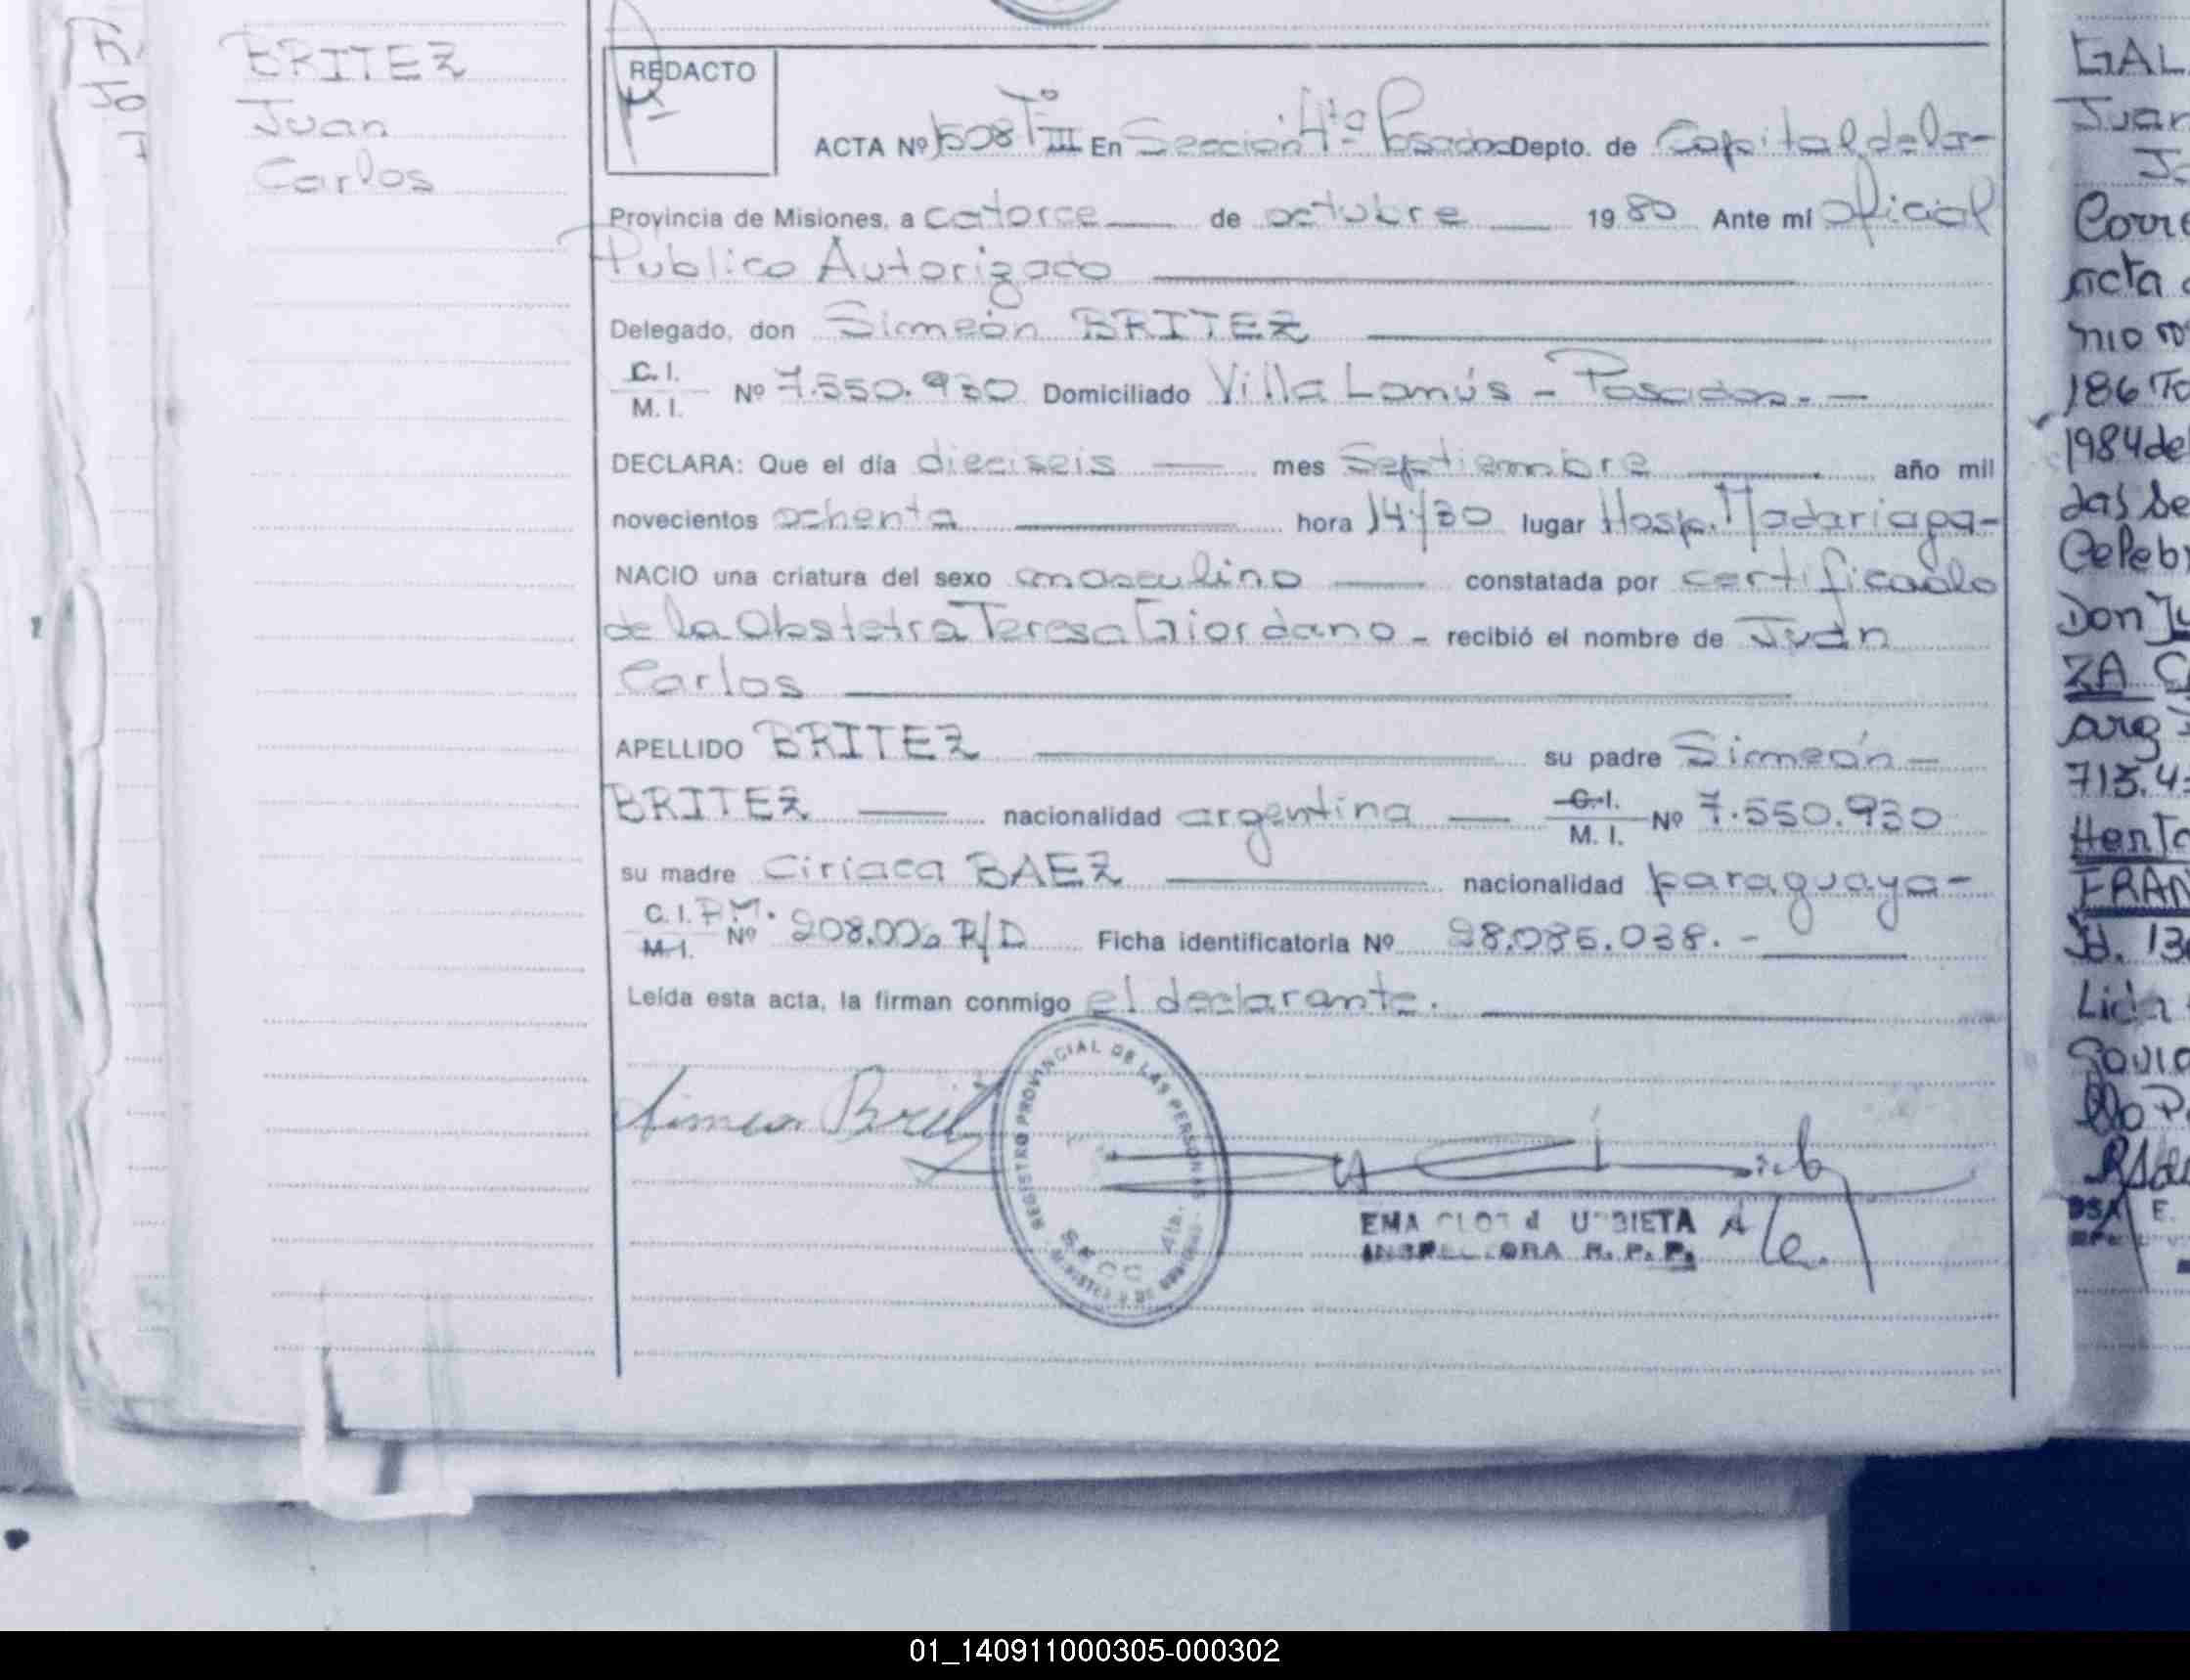 BRITEZ
Juan
Carlos
REDACTO
ACTA Nº 1508 Tº III En Sección 4ta Posadas Depto. de Capital de la-
Provincia de Misiones, a catorce de octubre 1980 Ante mí Oficial
Publico Autorizado
Delegado, don Simeón BRITEZ
C. I.
M. I. Nº 7.550.930 Domiciliado Villa Lanús - Posadas. -
DECLARA: Que el día dieciseis mes Septiembre año mil
novecientos ochenta hora 14/30 lugar Hosp. Madariaga-
NACIO una criatura del sexo masculino constatada por certificado
de la Obstetra Teresa Giordano - recibió el nombre de Juan
Carlos
APELLIDO BRITEZ su padre Simeón-
BRITEZ nacionalidad argentina C. I.
M. I. Nº 7.550.930
su madre Ciriaca BAEZ nacionalidad paraguaya-
C. I. P.M.
M. I. Nº 208.006 P/D Ficha identificatoria Nº 28.085.038. -
Leída esta acta, la firman conmigo el declarante.
Simeon Britez
REGISTRO PROVINCIAL DE LAS PERSONAS
4ta.
EMA URBIETA
INSPECTORA R. P. P.
GAL
Juan
acta
186 To
1984 del
Celeb
Don Ju
ZA
arg
713.4
FRAN
Lida
01_140911000305-000302